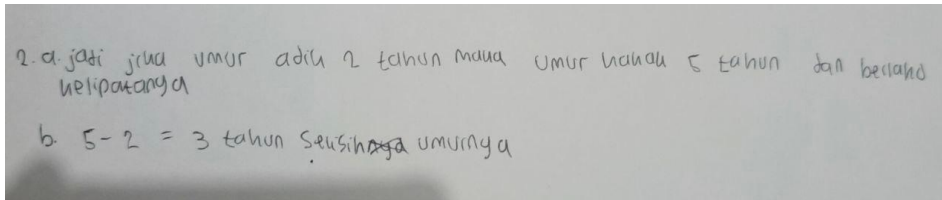 2. a. jadi jika umur adik 2 tahun maka umur kakak 5 tahun dan berlaku
kelipatanya
b. 5 - 2 = 3 tahun selisih umurnya